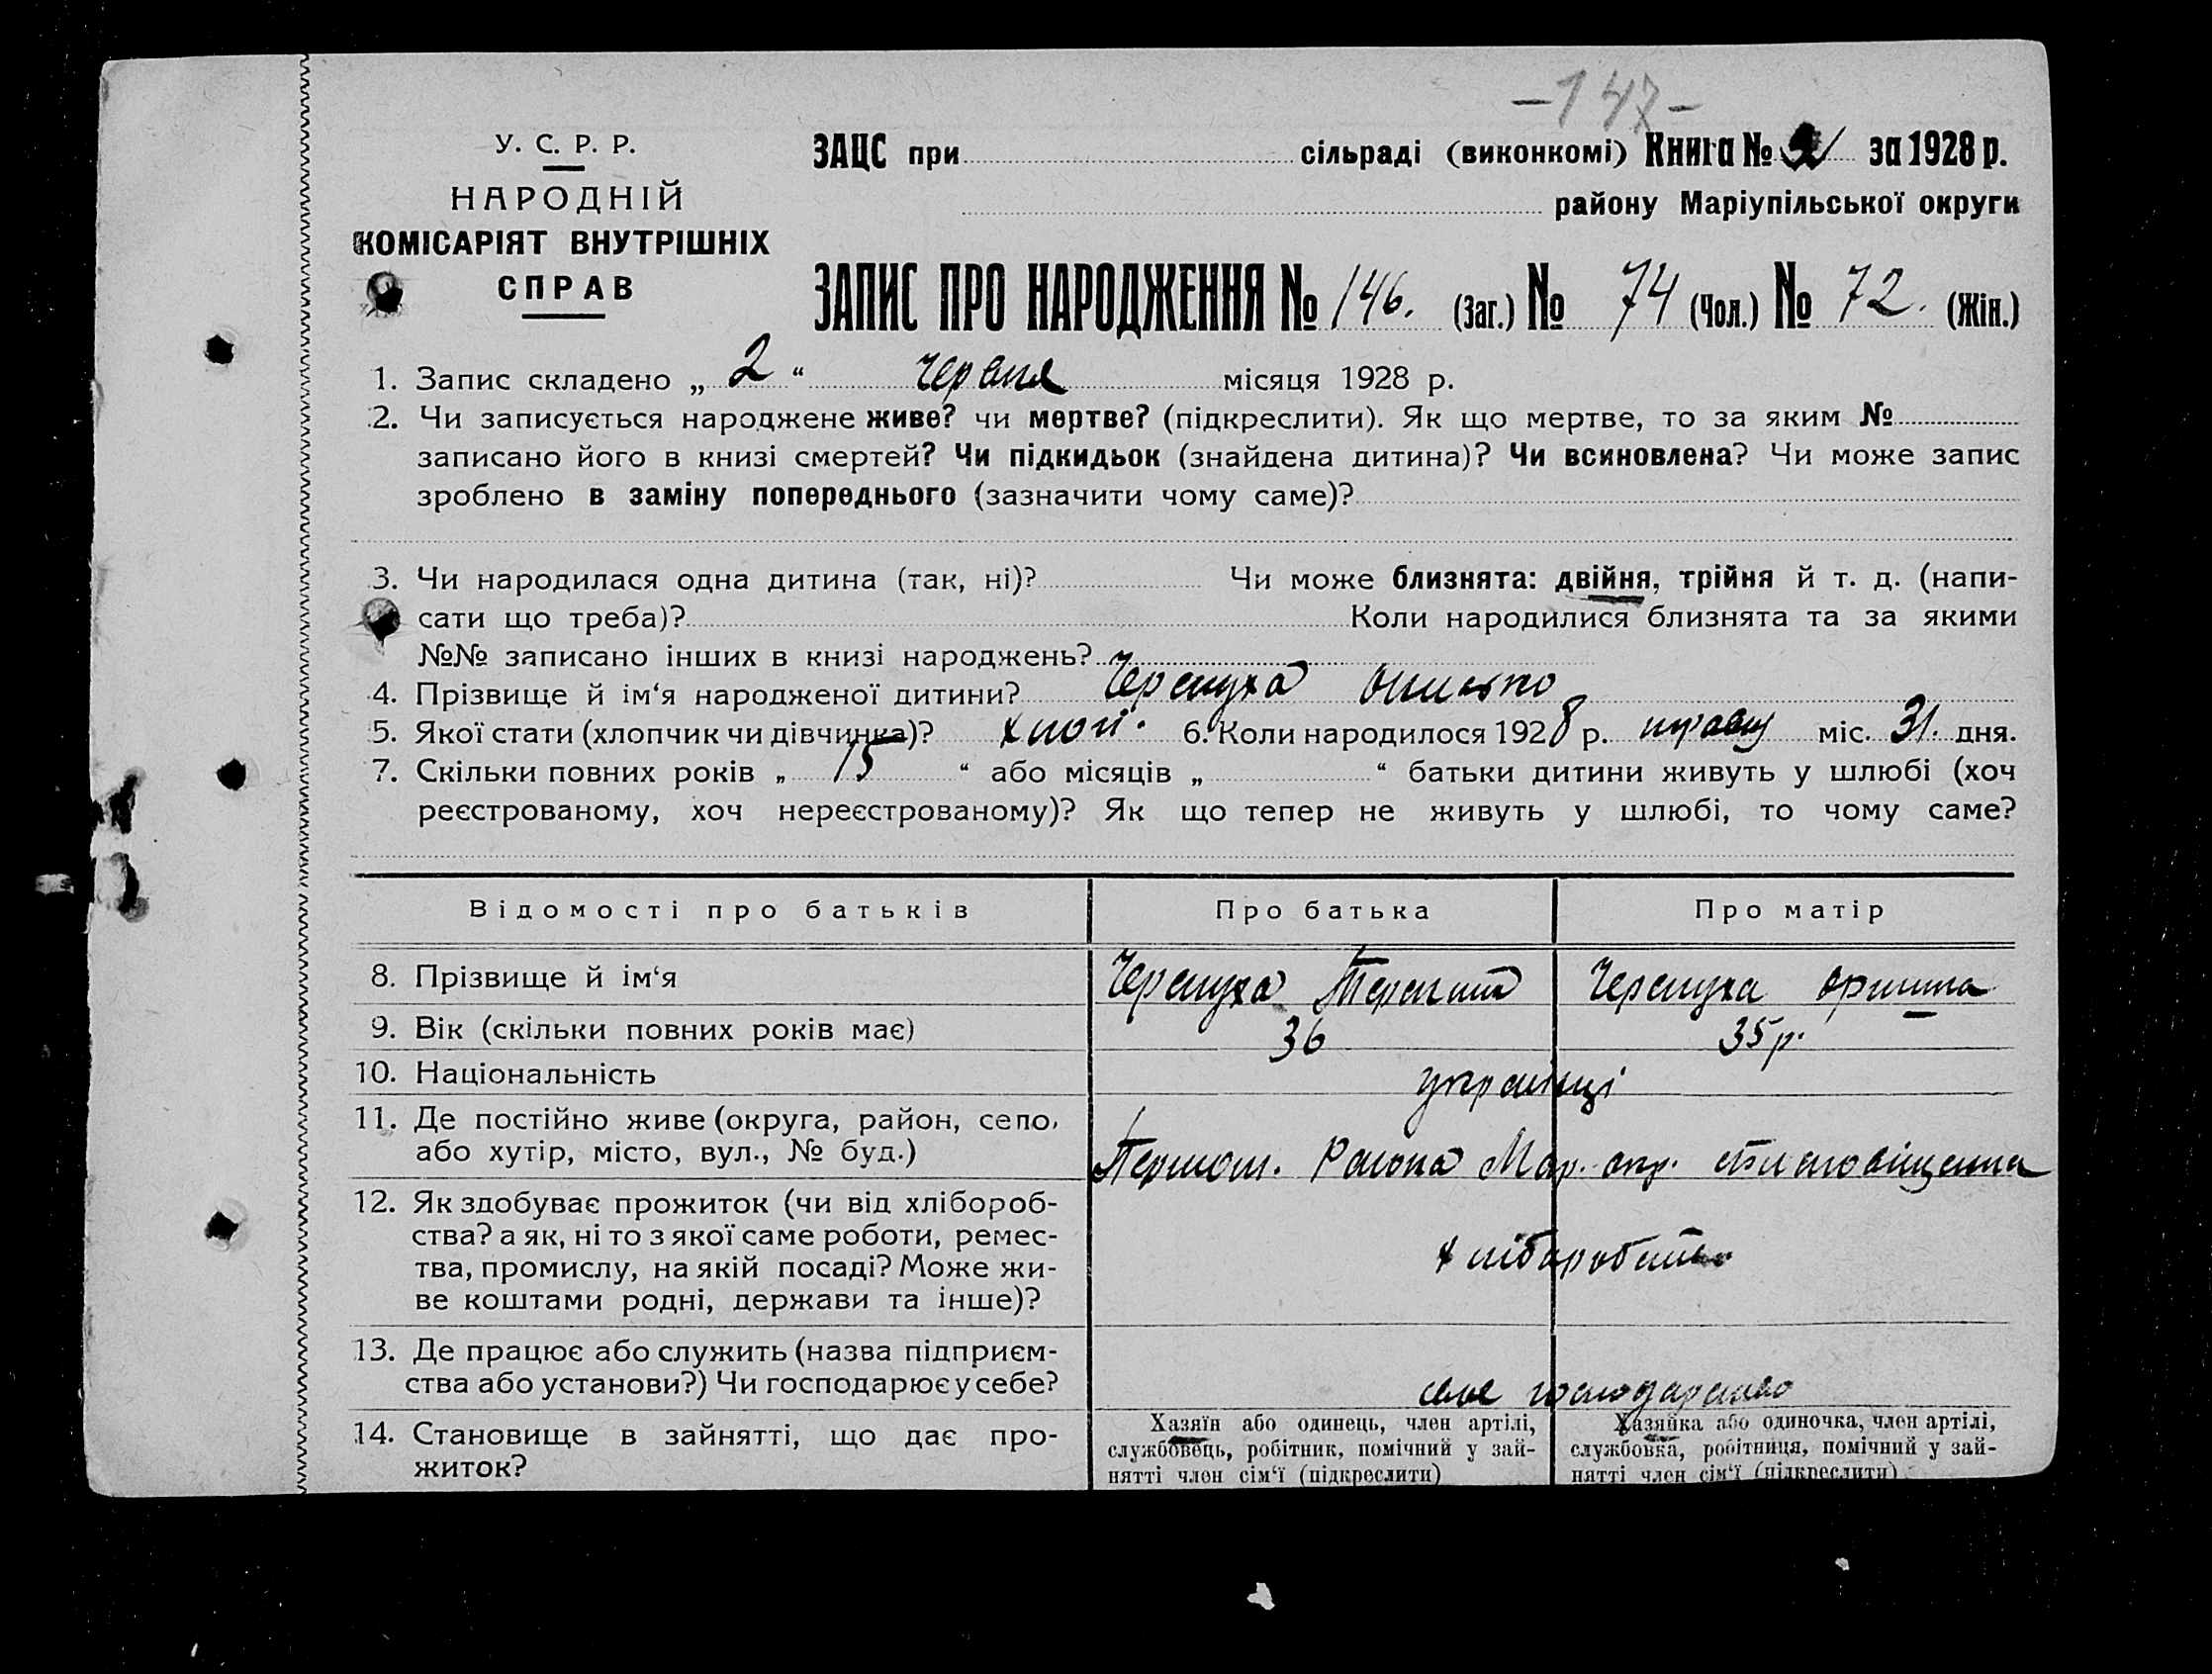 -147-
У. С. Р. Р.
НАРОДНІЙ
КОМІСАРІЯТ ВНУТРІШНІХ
СПРАВ
ЗАЦС при сільраді (виконкомі) Книга № 2 за 1928 р.
району Маріупільської округи
ЗАПИС ПРО НАРОДЖЕННЯ № 146. (Заг.) № 74 (Чол.) № 72. (Жін.)
1. Запис складено „ 2 “ червня місяця 1928 р.
2. Чи записується народжене живе? чи мертве? (підкреслити). Як що мертве, то за яким №
записано його в книзі смертей? Чи підкидьок (знайдена дитина)? Чи всиновлена? Чи може запис
зроблено в заміну попереднього (зазначити чому саме)?
3. Чи народилася одна дитина (так, ні)? Чи може близнята: двійня, трійня й т. д. (напи-
сати що треба)? Коли народилися близнята та за якими
№№ записано інших в книзі народжень?
4. Прізвище й ім‘я народженої дитини? Черепуха
5. Якої стати (хлопчик чи дівчинка)? хлоп. 6. Коли народилося 1928 р. травня міс. 31. дня.
7. Скільки повних років „ 15 “ або місяців „ “ батьки дитини живуть у шлюбі (хоч
реєстрованому, хоч нереєстрованому)? Як що тепер не живуть у шлюбі, то чому саме?
Відомості про батьків Про батька Про матір
8. Прізвище й ім‘я Черепуха Черепуха
9. Вік (скільки повних років має) 36 35 р.
10. Національність українці
11. Де постійно живе (округа, район, село,
або хутір, місто, вул., № буд.) Району Мар. окр.
12. Як здобуває прожиток (чи від хлібороб-
ства? а як, ні то з якої саме роботи, ремес-
тва, промислу, на якій посаді? Може жи- хліборобство
ве коштами родні, держави та інше)?
13. Де працює або служить (назва підприєм-
ства або установи?) Чи господарює у себе? своє господарство
14. Становище в зайнятті, що дає про-
житок?
Хазяїн або одинець, член артілі,
службовець, робітник, помічний у зай-
нятті член сім‘ї (підкреслити)
Хазяйка або одиночка, член артілі,
службовка, робітниця, помічний у зай-
нятті член сім‘ї (підкреслити)